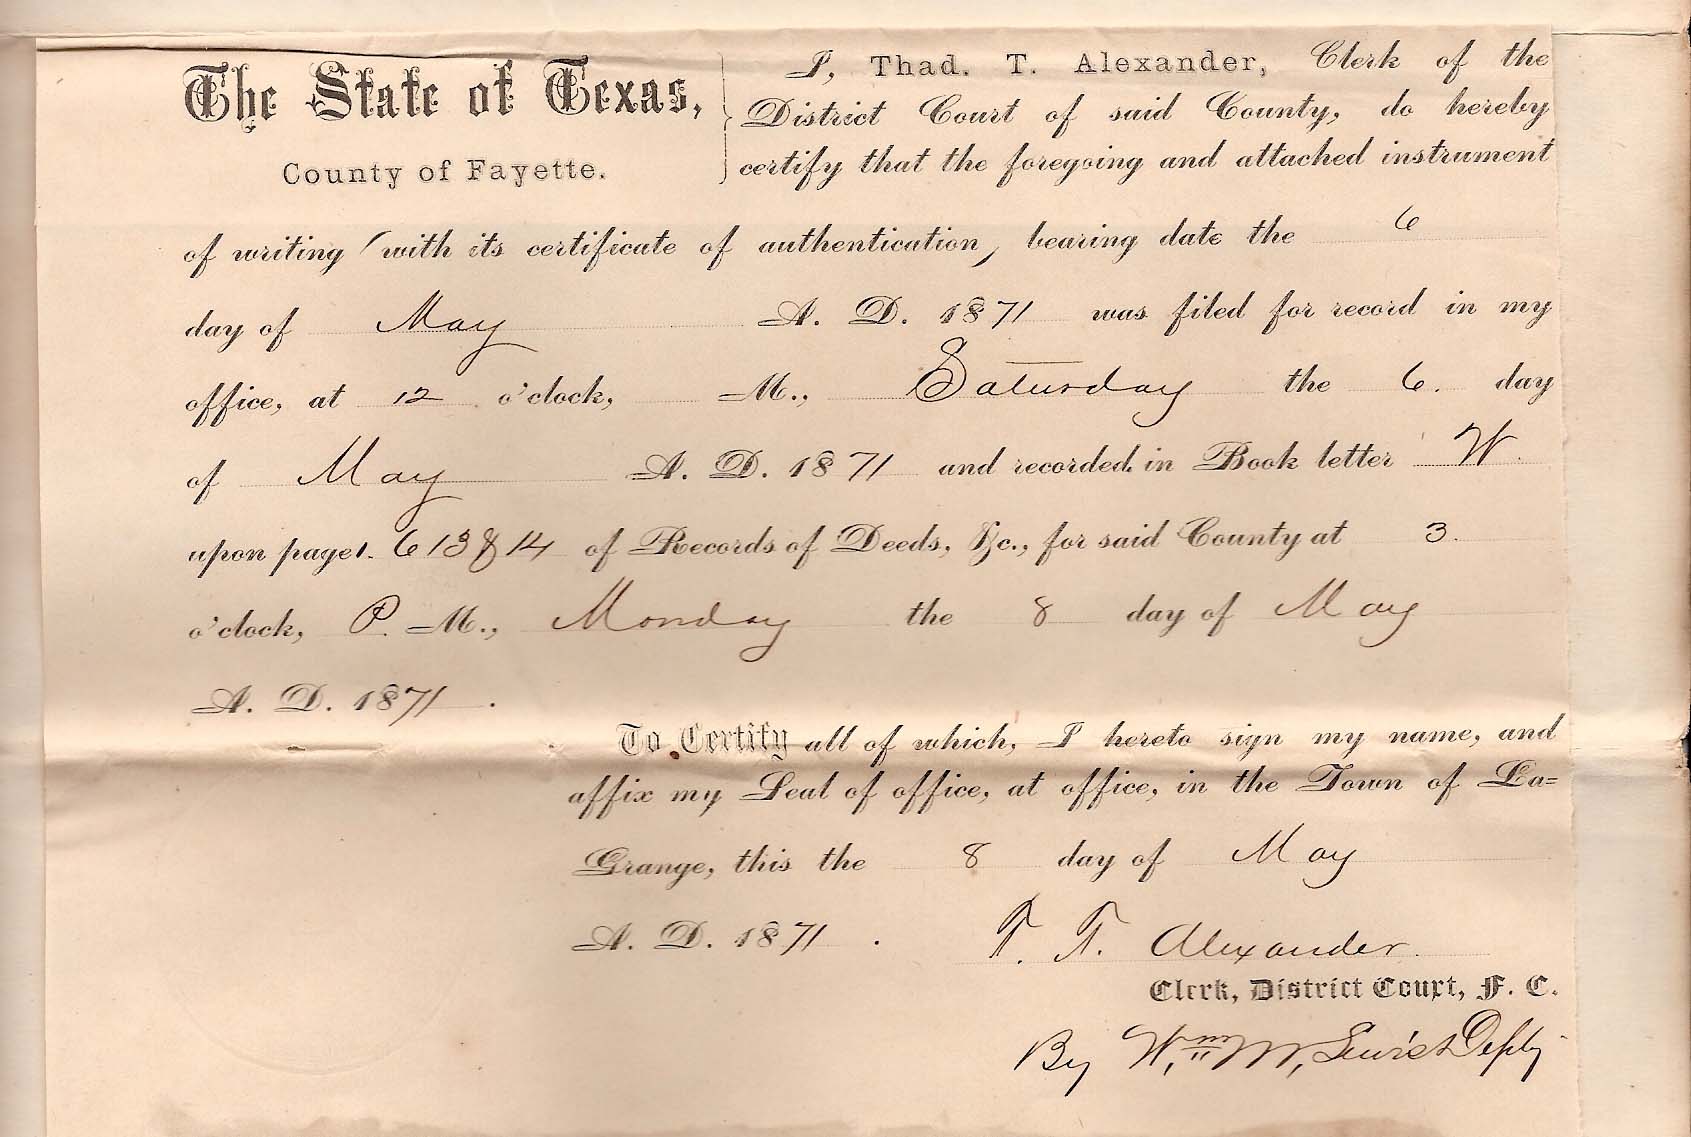 The State of Texas,
County of Fayette.
I, Thad. T. Alexander, Clerk of the
District Court of said County, do hereby
certify that the foregoing and attached instrument
of writing (with its certificate of authentication, bearing date the 6
day of May A. D. 1871 was filed for record in my
office, at 12 o'clock, M., Saturday the 6. day
of May A. D. 1871 and recorded in Book letter W.
upon page 613 & 14 of Records of Deeds, &c., for said County at 3.
o'clock, P. M., Monday the 8 day of May
A. D. 1871.
To Certify all of which, I hereto sign my name, and
affix my Seal of office, at office, in the Town of La=
Grange, this the 8 day of May
A. D. 1871.
T. T. Alexander.
Clerk, District Court, F. C.
By Wm M, Lewis Depty